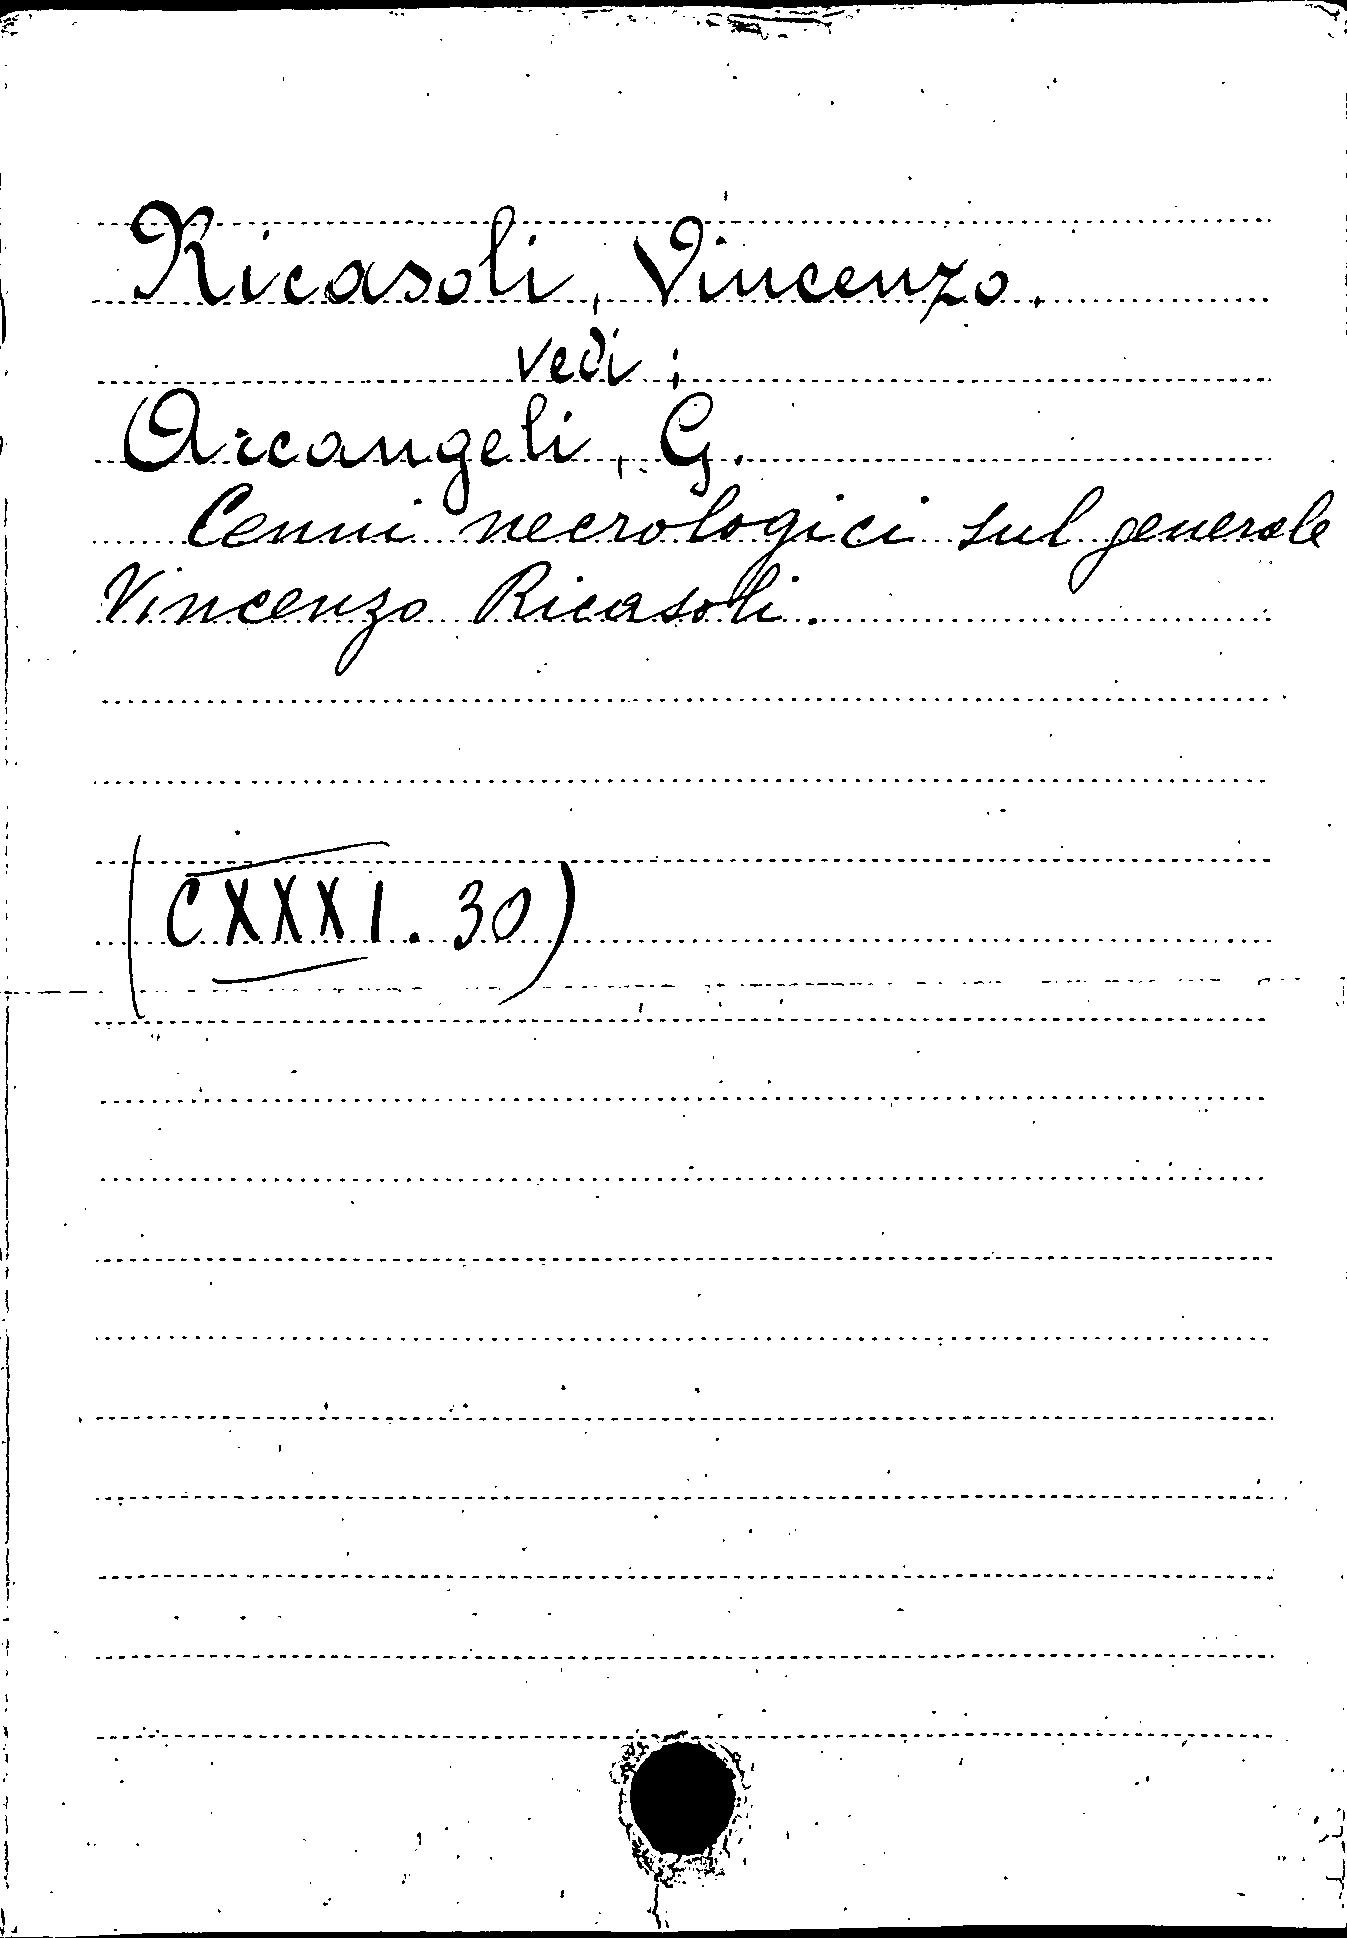 Ricasoli, Vincenzo.
vedi:
Arcangeli, G.
Cenni necrologici sul generale
Vincenzo Ricasoli.
(CXXXI. 30)